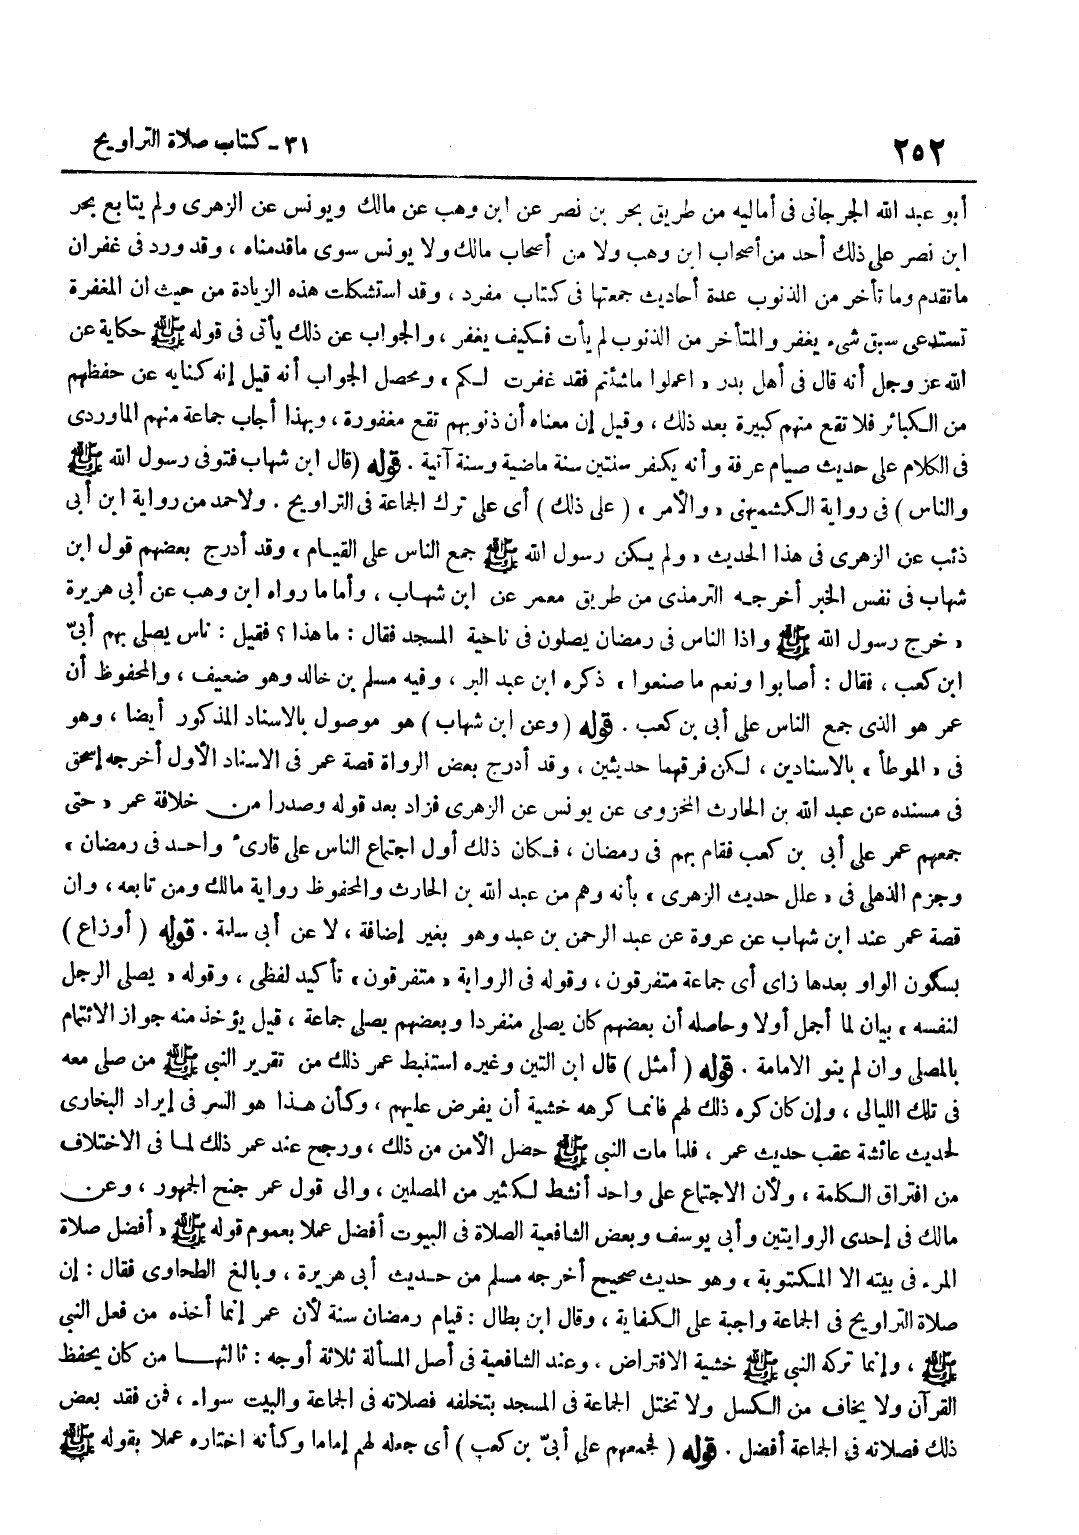 ٢٥٢
٣١ - كتاب صلاة التراويح
أبو عبد الله الجرجانى فى أماليه من طريق بحر بن نصر عن ابن وهب عن مالك ويونس عن الزهرى ولم يتابع بحر
ابن نصر على ذلك أحد من أصحاب ابن وهب ولا من أصحاب مالك ولا يونس سوى ماقدمناه ، وقد ورد فى غفران
ماتقدم وما تأخر من الذنوب عدة أحاديث جمعتها فى كتاب مفرد ، وقد استشكلت هذه الزيادة من حيث ان المغفرة
تستدعى سبق شىء يغفر والمتأخر من الذنوب لم يأت فكيف يغفر ، والجواب عن ذلك يأتى فى قوله ﷺ حكاية عن
الله عز وجل أنه قال فى أهل بدر « اعملوا ماشئتم فقد غفرت لكم » ومحصل الجواب أنه قيل إنه كناية عن حفظهم
من الكبائر فلا تقع منهم كبيرة بعد ذلك ، وقيل إن معناه أن ذنوبهم تقع مغفورة ، وبهذا أجاب جماعة منهم الماوردى
فى الكلام على حديث صيام عرفة وأنه يكفر سنتين سنة ماضية وسنة آتية . قوله ( قال ابن شهاب فتوفى رسول الله ﷺ
والناس ) فى رواية الكشميهنى « والأمر » ( على ذلك ) أى على ترك الجماعة فى التراويح . ولاحمد من رواية ابن أبى
ذئب عن الزهرى فى هذا الحديث « ولم يكن رسول الله ﷺ جمع الناس على القيام » وقد أدرج بعضهم قول ابن
شهاب فى نفس الخبر أخرجه الترمذى من طريق معمر عن ابن شهاب ، وأما ما رواه ابن وهب عن أبى هريرة
« خرج رسول الله ﷺ واذا الناس فى رمضان يصلون فى ناحية المسجد فقال : ما هذا ؟ فقيل : ناس يصلى بهم أبىّ
ابن كعب ، فقال : أصابوا ونعم ما صنعوا » ذكره ابن عبد البر ، وفيه مسلم بن خالد وهو ضعيف ، والمحفوظ أن
عمر هو الذى جمع الناس على أبى بن كعب . قوله ( وعن ابن شهاب ) هو موصول بالاسناد المذكور أيضا ، وهو
فى « الموطأ » بالاسنادين ، لكن فرقهما حديثين ، وقد أدرج بعض الرواة قصة عمر فى الاسناد الأول أخرجه إسحق
فى مسنده عن عبد الله بن الحارث المخزومى عن يونس عن الزهرى فزاد بعد قوله وصدرا من خلافة عمر « حتى
جمعهم عمر على أبى بن كعب فقام بهم فى رمضان ، فكان ذلك أول اجتماع الناس على قارئ واحد فى رمضان »
وجزم الذهلى فى « علل حديث الزهرى » بأنه وهم من عبد الله بن الحارث والمحفوظ رواية مالك ومن تابعه ، وان
قصة عمر عند ابن شهاب عن عروة عن عبد الرحمن بن عبد وهو بغير إضافة ، لا عن أبى سلمة . قوله ( أوزاع )
بسكون الواو بعدها زاى أى جماعة متفرقون ، وقوله فى الرواية « متفرقون » تأكيد لفظى ، وقوله « يصلى الرجل
لنفسه » بيان لما أجمل أولا وحاصله أن بعضهم كان يصلى منفردا وبعضهم يصلى جماعة ، قيل يؤخذ منه جواز الائتمام
بالمصلى وان لم ينو الامامة . قوله ( أمثل ) قال ابن التين وغيره استنبط عمر ذلك من تقرير النبى ﷺ من صلى معه
فى تلك الليالى ، وإن كان كره ذلك لهم فانما كرهه خشية أن يفرض عليهم ، وكأن هذا هو السر فى إيراد البخارى
لحديث عائشة عقب حديث عمر ، فلما مات النبى ﷺ حصل الأمن من ذلك ، ورجح عند عمر ذلك لما فى الاختلاف
من افتراق الكلمة ، ولأن الاجتماع على واحد أنشط لكثير من المصلين ، والى قول عمر جنح الجمهور ، وعن
مالك فى إحدى الروايتين وأبى يوسف وبعض الشافعية الصلاة فى البيوت أفضل عملا بعموم قوله ﷺ « أفضل صلاة
المرء فى بيته الا المكتوبة » وهو حديث صحيح أخرجه مسلم من حديث أبى هريرة ، وبالغ الطحاوى فقال : إن
صلاة التراويح فى الجماعة واجبة على الكفاية ، وقال ابن بطال : قيام رمضان سنة لأن عمر إنما أخذه من فعل النبى
ﷺ ، وإنما تركه النبى ﷺ خشية الافتراض ، وعند الشافعية فى أصل المسألة ثلاثة أوجه : ثالثها من كان يحفظ
القرآن ولا يخاف من الكسل ولا تختل الجماعة فى المسجد بتخلفه فصلاته فى الجماعة والبيت سواء ، فمن فقد بعض
ذلك فصلاته فى الجماعة أفضل . قوله ( فجمعهم على أبىّ بن كعب ) أى جعله لهم إماما وكأنه اختاره عملا بقوله ﷺ